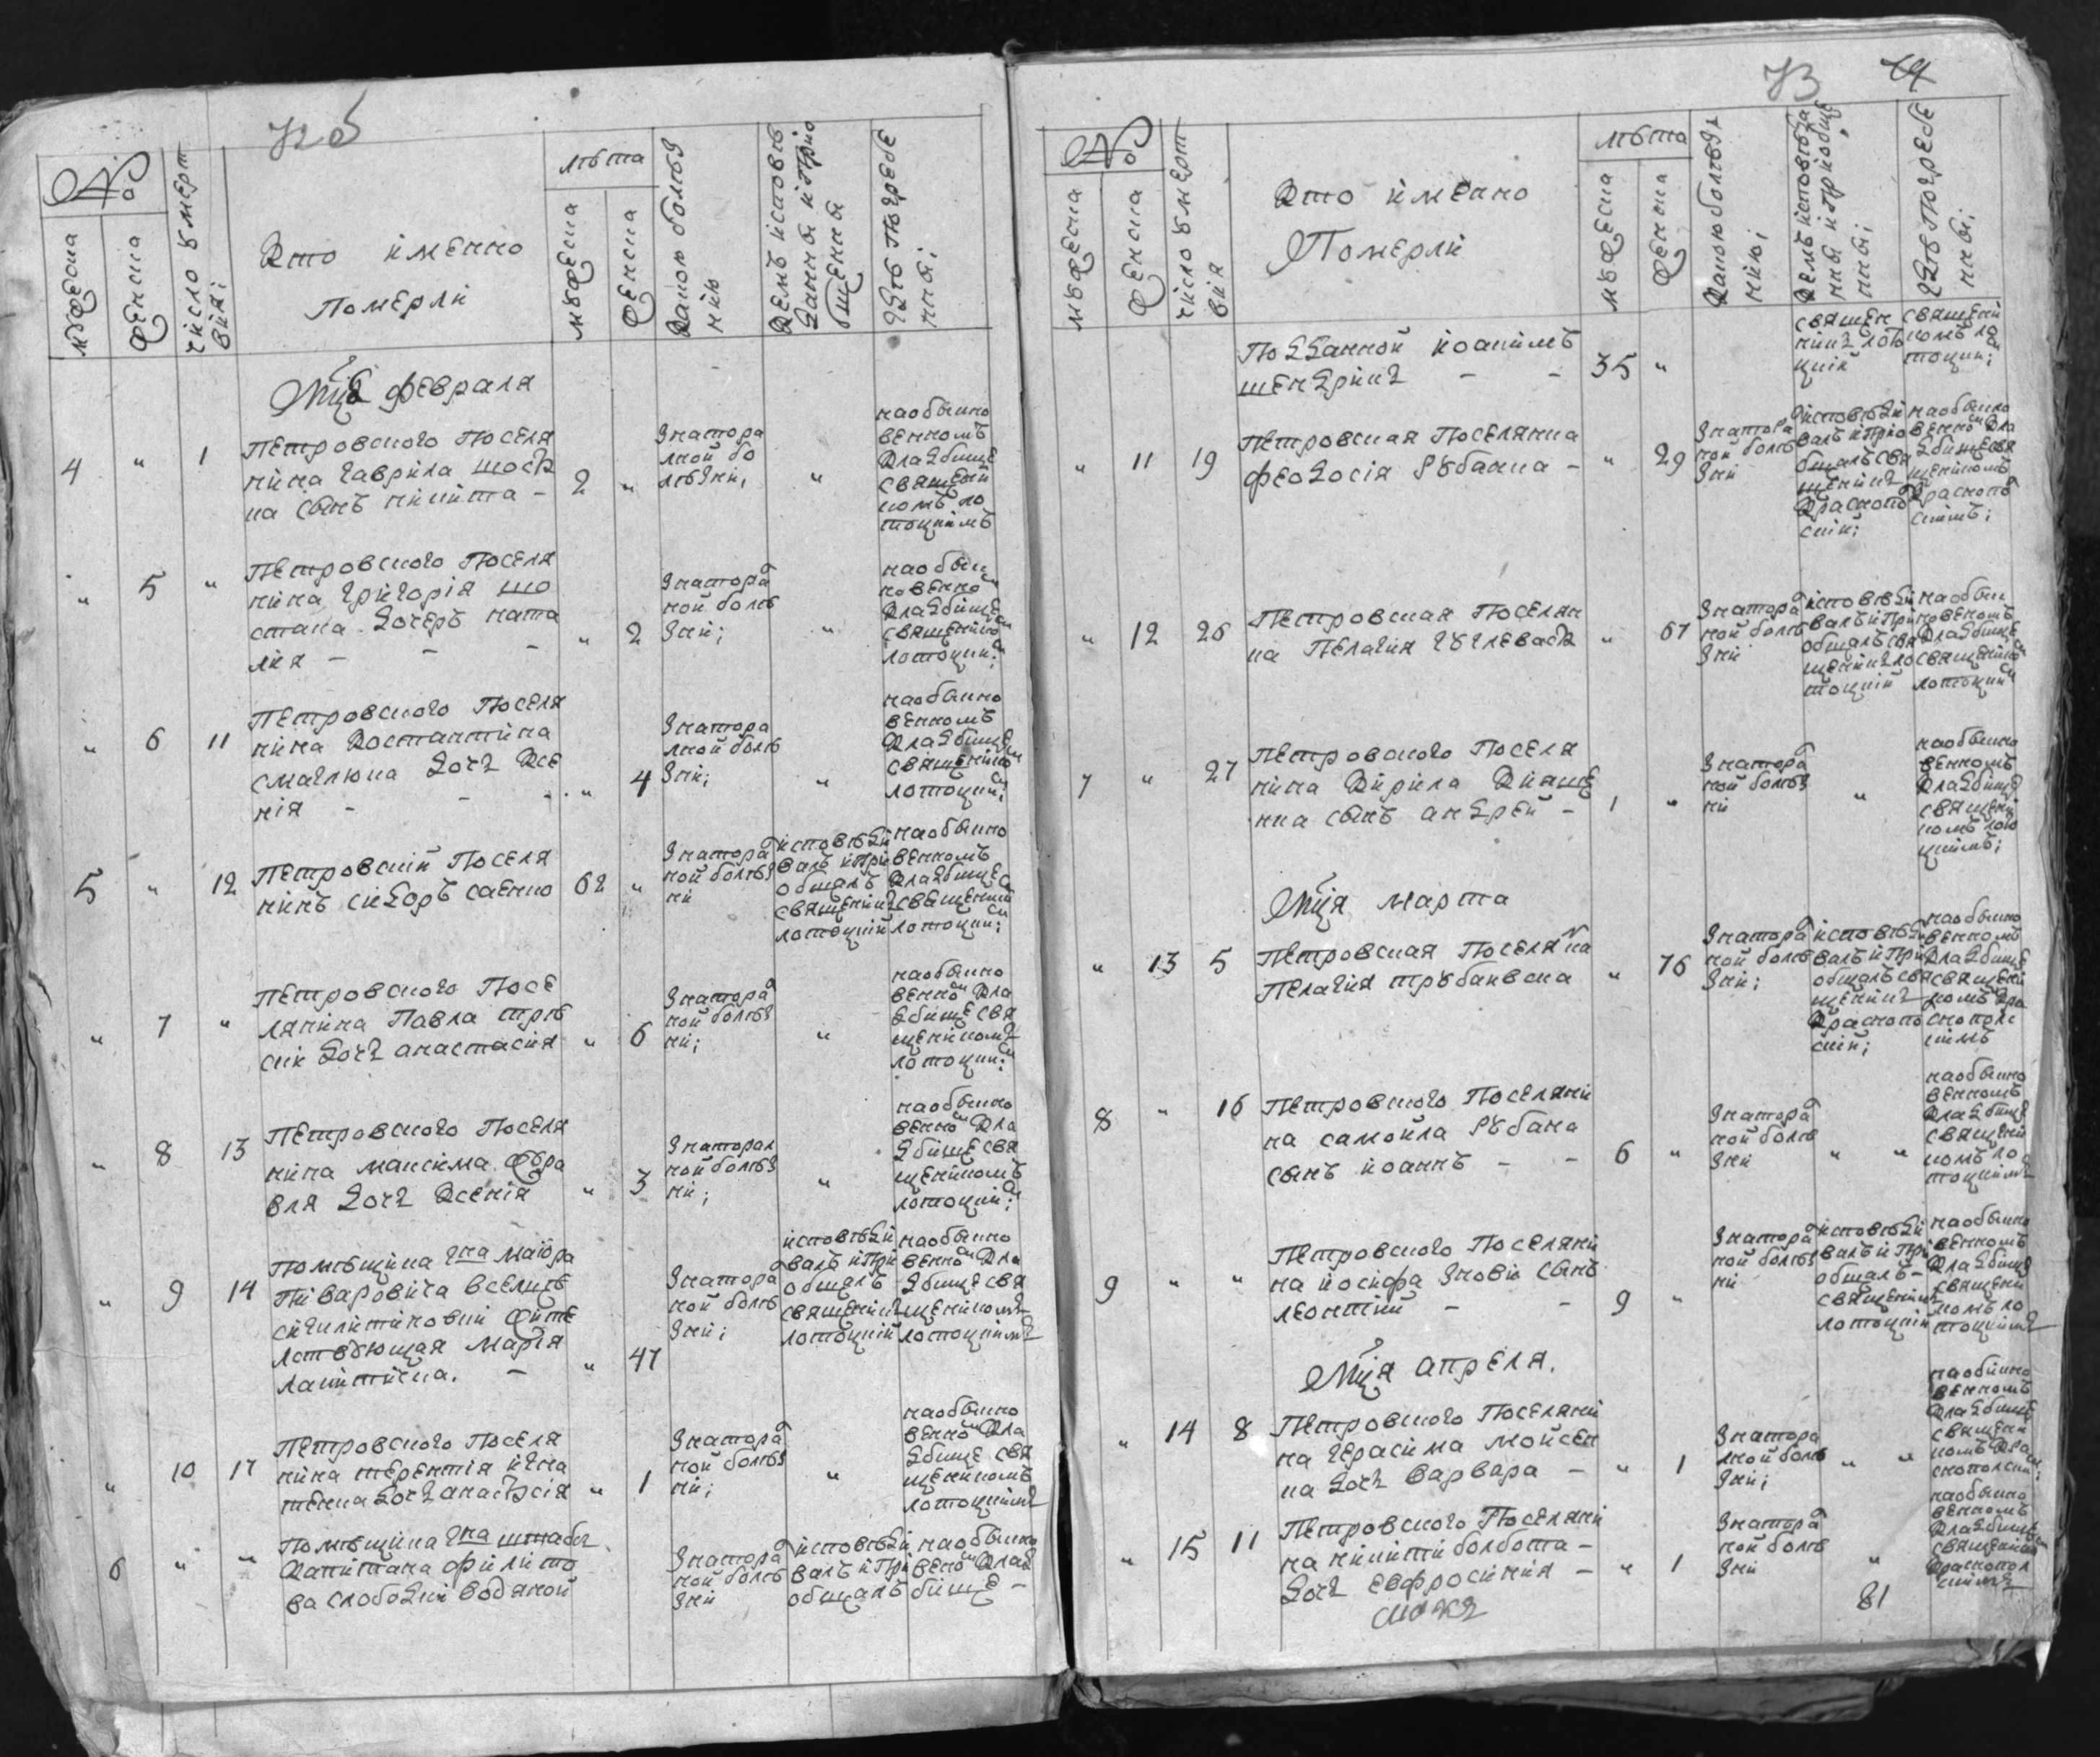 72 об
№
мужеска
женска
число умерт
вія:
Кто именно
Померли
лѣта
мужеска
женска
Какою болѣз
нію
Кемъ исповѣ
данны и Прио
бщены
Гдѣ Погребе
нны:
Мца февраля
4 " 1
Петровского Поселя
нина Гаврила Шостк
на сынъ никита - 2 "
Знатора
лной бо
лѣзни,
"
наобыкно
венномъ
Кладбище
священи
комъ ло
тоцкимъ
" 5 "
Петровского Поселя
нина Григорія Шо
стака дочеръ ната
лия - - - " 2
Знатора
ной болѣ
зни;
"
наобык
новенно
Кладбище
священико
лотоцки:
" 6 11
Петровского Поселя
нина Костантина
смаглюка дочь Ксе
нія - - " 4
Знатора
лной болѣ
зни;
"
наобыкно
венномъ
Кладбище
священико
лотоцки:
5 " 12
Петровский Поселя
нинъ сидоръ саенко 62 "
Знатора
ной болѣз
ни
исповѣди
валъ и При
общалъ
священикъ
лотоцкий
наобыкно
венномъ
Кладбище
священико
лотоцки:
" 7 "
Петровского Посе
лянина Павла трѣ
ски дочь анастасия " 6
Знатора
ной болѣз
ни;
"
наобыкно
венно Кла
дбище свя
щеникомъ
лотоцки:
" 8 13
Петровского Поселя
нина максима жура
вля дочь Ксения " 3
Знаторал
ной болѣз
ни;
"
наобыкно
венно Кла
дбище свя
щеникомъ
лотоцки:
" 9 14
Помѣщика гна маиора
Пиваровича вселце
сигилитиновки жите
лствующая Марія
лакитиска. - " 47
Знатора
ной болѣ
зни;
исповѣди
валъ и При
общалъ
священикъ
лотоцкий
наобыкно
венно Кла
дбище свя
щеникомъ
лотоцкимъ
" 10 17
Петровского Поселя
нина терентія игна
тенка дочь анастасія " 1
Знатора
ной болѣз
ни;
"
наобыкно
венно Кла
дбище свя
щеникомъ
лотоцкимъ
6 " "
Помѣщика гна штабъ
Капитана филипо
ва слободки водяной
Знатора
ной болѣ
зни
исповѣди
валъ и При
общалъ
наобыкно
вено Клад
бище -
73 74
№
мужеска
женска
число умерт
вія
Кто именно
Померли
лѣта
мужеска
женска
Какою болѣзн
нію;
Кемъ исповѣда
нны и Приобще
нны;
Гдѣ Погребе
нны;
Подданной иоакимъ
шендрикъ - - 35 "
священ
никъ лото
цкий
священи
комъ ло
тоцки:
" 11 19
Петровская Поселянка
феодосія Рубанка - " 29
Знатора
ной болѣ
зни
исповѣди
валъ и Прио
бщалъ свя
щеникъ
Краснопо
ский;
наобыкно
венно Кла
дбище свя
щеникомъ
Краснопо
скимъ;
" 12 26
Петровская Поселян
ка Пелагия Гуглевack " 67
Знатора
ной болѣ
зни
исповѣди
валъ и При
общалъ свя
щеникъ ло
тоцкий
наобык
новеномъ
Кладбище
священико
лотоцки
7 " 27
Петровского Поселя
нина Кирила Кияше
нка сынъ андрей - 1 "
Знатора
ной болѣз
ни
"
наобыкно
венномъ
Кладбище
священи
комъ лото
цкимъ;
Мця марта
" 13 5
Петровская Поселянка
Пелагия трубаивска " 76
Знатора
ной болѣ
зни;
исповѣди
валъ и При
общалъ свя
щеникъ
Краснопо
ский;
наобыкно
венномъ
Кладбище
священи
комъ Кра
снополс
кимъ
8 " 16
Петровского Поселяни
на самойла Рубана
сынъ иоаннъ - - 6 "
Знатора
ной болѣ
зни
" "
наобыкно
венномъ
Кладбище
священи
комъ ло
тоцкимъ
9 " "
Петровского Поселяни
на иосифа зновки сынъ
леонтий - - 9 "
Знатора
ной болѣз
ни
исповѣди
валъ и При
общалъ -
священикъ
лотоцкий
наобыкно
венномъ
Кладбище
священи
комъ ло
тоцкимъ
Мця апреля.
" 14 8
Петровского Поселяни
на Герасима мойсен
ка дочь варвара - " 1
Знатора
лной болѣ
зни;
" "
наобыкно
венномъ
Кладбище
священи
комъ Кра
снополски:
" 15 11
Петровского Поселяни
на никити болбота -
дочь евфросиния - " 1
Знатора
ной болѣ
зни
"
наобыкно
венномъ
Кладбище
священико
Краснопол
скимъ
81